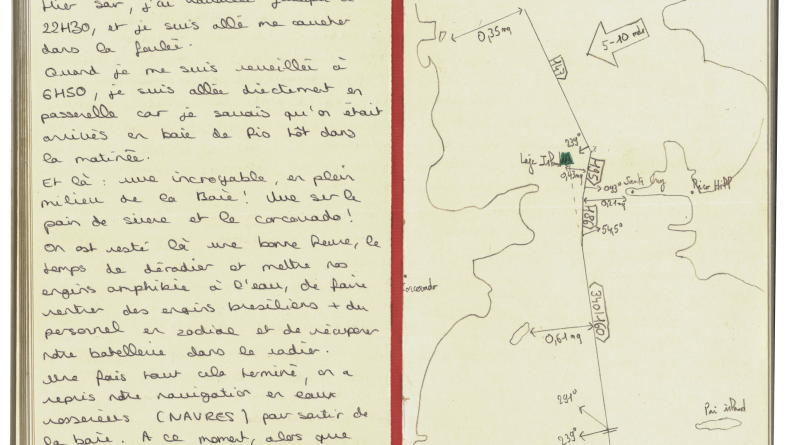 Hier soir, j'ai
22H30, et je suis allé me coucher
dans la foulée.
Quand je me suis réveillée à
6H50, je suis allée directement en
passerelle car je savais qu'on était
arrivés en baie de Rio tôt dans
la matinée.
Et là : vue incroyable, en plein
milieu de la Baie ! Vue sur le
pain de sucre et le corcovado !
On est resté là une bonne heure, le
temps de déradier et mettre nos
engins amphibie à l'eau, de faire
rentrer des engins brésiliens + du
personnel en zodiac et de récupérer
notre batellerie dans le radier.
Une fois tout cela terminé, on a
repris notre navigation en eaux
resserrées (NAVRES) pour sortir de
la baie. A ce moment, alors que
0,35 mq
5-10 nds
239°
Laje Island
0,43 mq
Santa Cruz
Rico Hill
0,21 mq
545°
Corcovado
340/160
0,61 mq
291°
239°
Pai island